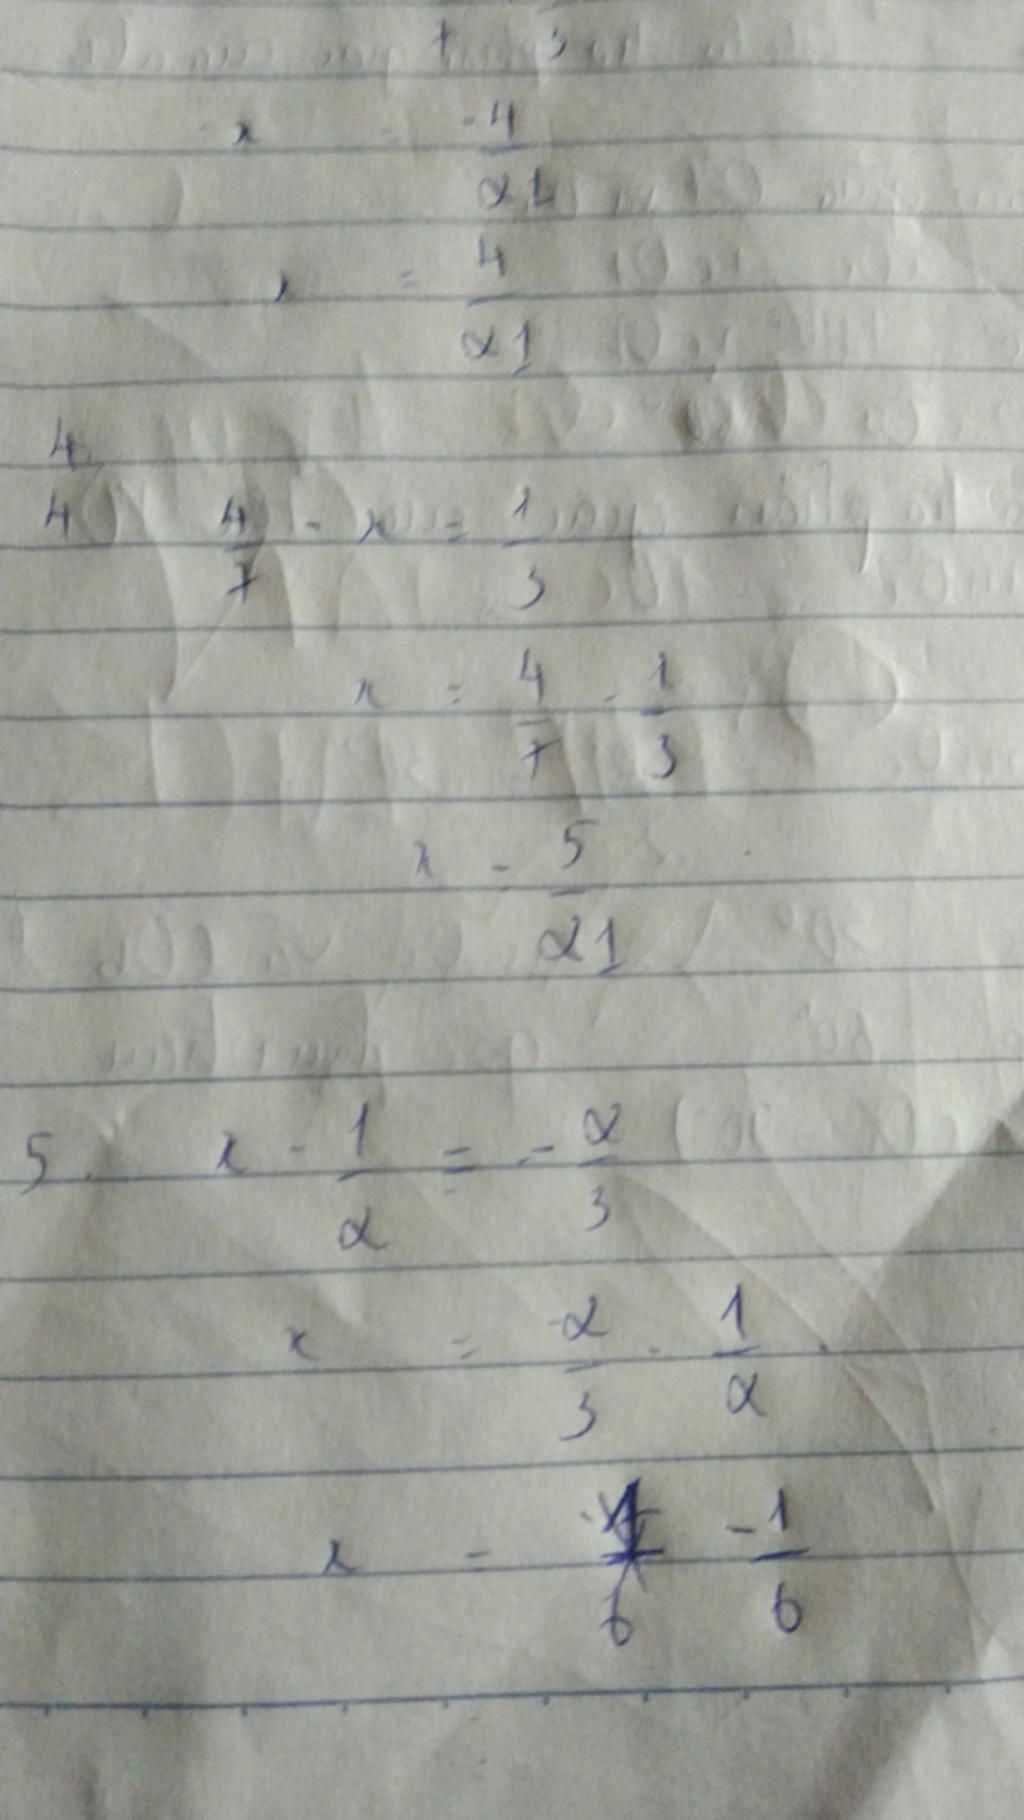 7 3
-x = -4/21
x = 4/21
4
4 4/7 - x = 1/3
x = 4/7 - 1/3
x = 5/21
5. x - 1/2 = -2/3
x = -2/3 - 1/2
x = -1/6